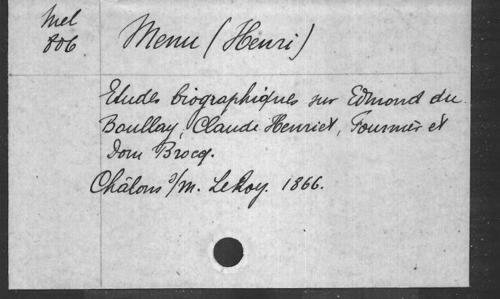 Mel
806
Menu (Henri)
Etudes biographiques sur Edmond du
Boullay, Claude Henriet, Fournier et
Dom Brocq.
Châlons s/m. LeRoy. 1866.